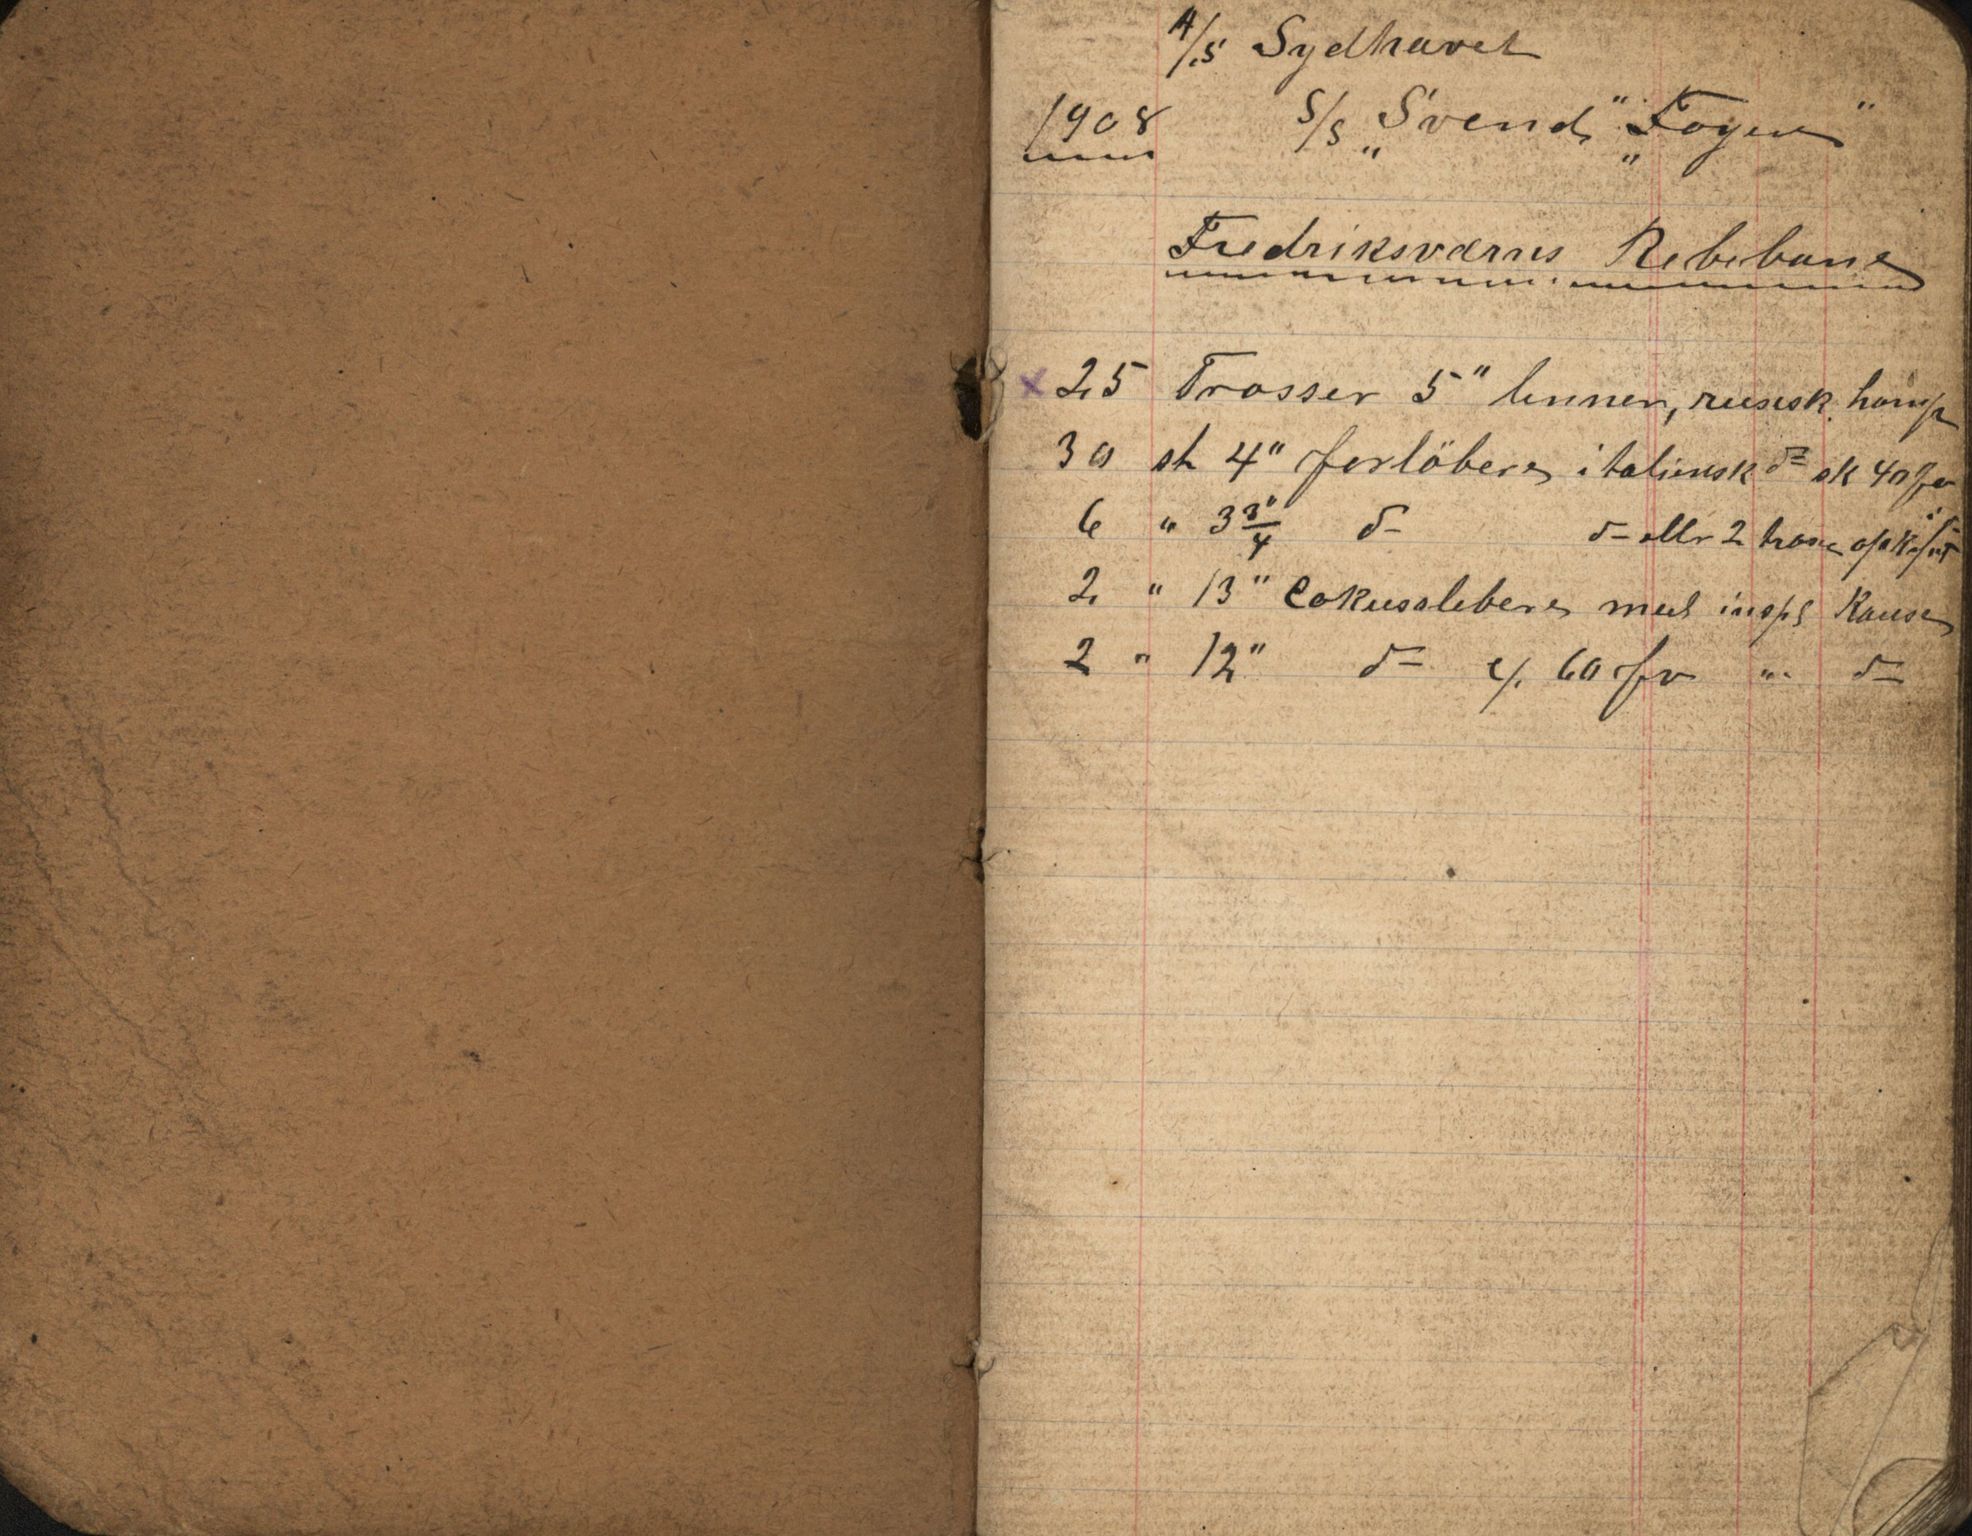 A/S Sydhavet
1908 S/S „Svend“ „Foyn“
Fredriksværns Rebebane
x 25 Trosser 5" linner, russisk hamp
30 st 4" forlöbere italiensk do ak 40 fv
6 " 3 3/4" do do eller 2 trosse opskj
2 " 13" Cokusslebere med inspl Kause
2 " 12" do c/. 60 fv " do